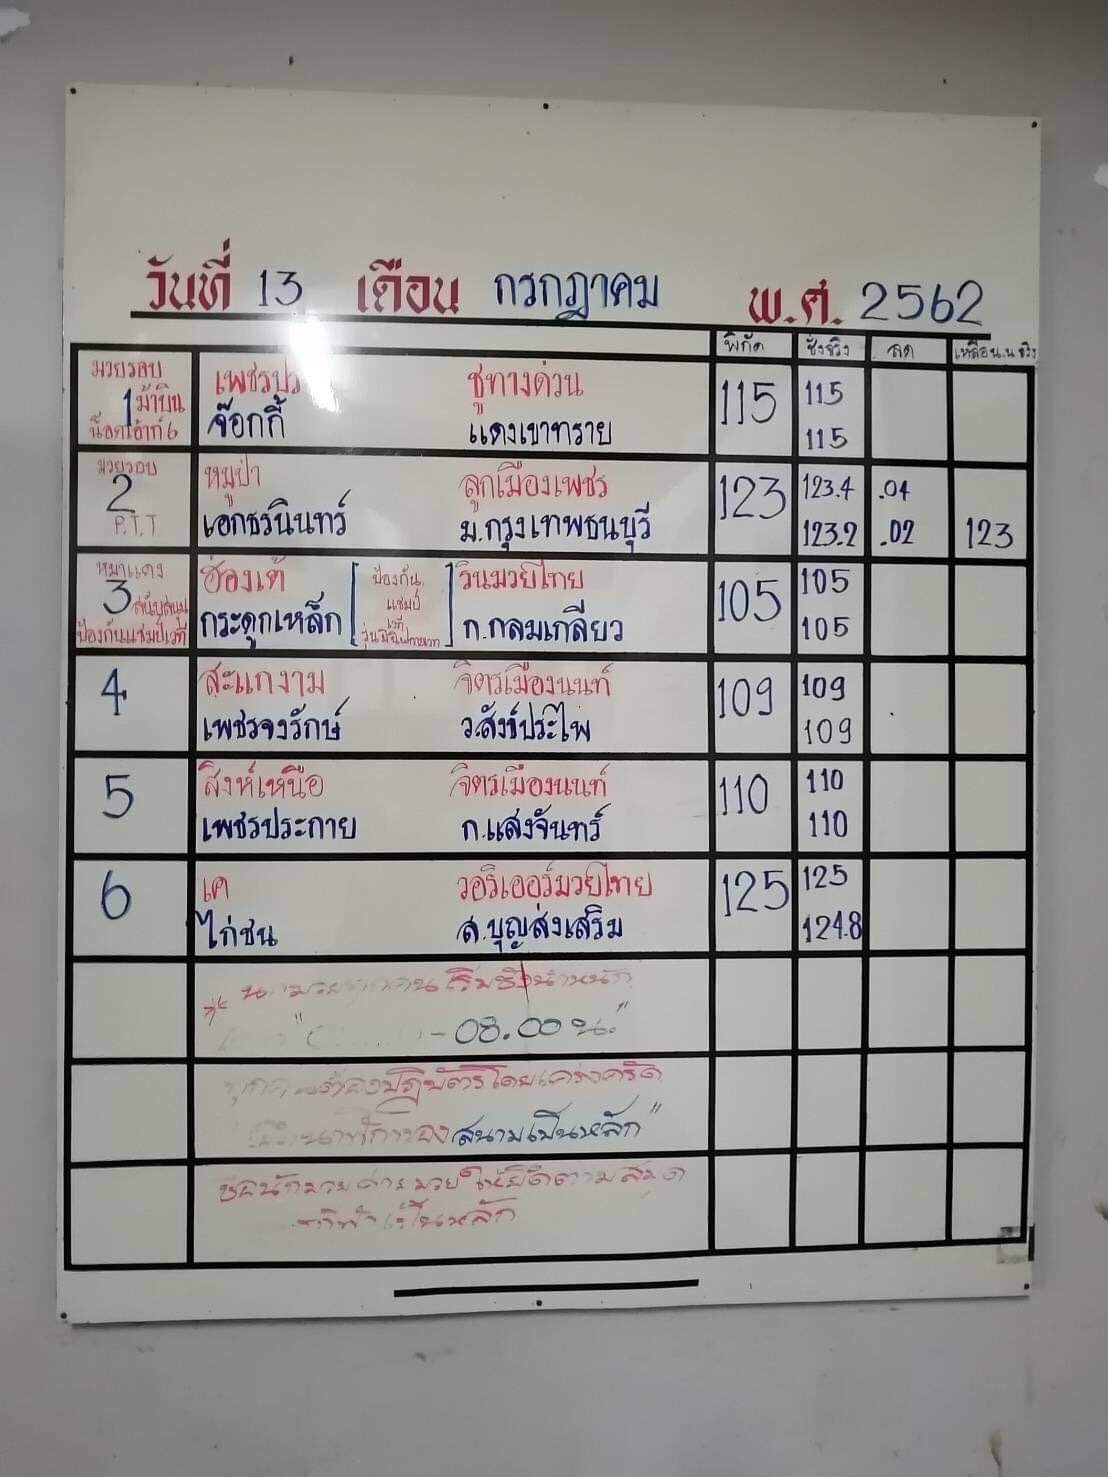 วันที่ 13 เดือน กรกฎาคม พ.ศ. 2562
พิกัด ชั่งจริง ลด เหลือน.น จริง
มวยรอบ
1 ม้าบิน
น็อคเอ้าท์ 6
เพชรปร ชูทางด่วน 115 115
จ๊อกกี้ แดงเขาทราย 115
มวยรอบ
2
P.T.T
หมูป่า ลูกเมืองเพชร 123 123.4 .04
เอกธรนินทร์ ม.กรุงเทพธนบุรี 123.2 .02 123
หมาแดง
3 สนับสนุน
ป้องกันแชมป์เวที
ฮ่องเต้ วินมวยไทย 105 105
กระดูกเหล็ก ก.กลมเกลียว 105
ป้องกัน
แชมป์
เวที
4
สะแกงาม จิตรเมืองนนท์ 109 109
เพชรจงรักษ์ ว.สังข์ประไพ 109
5
สิงห์เหนือ จิตรเมืองนนท์ 110 110
เพชรประกาย ก.แสงจันทร์ 110
6
เค วอริเออร์มวยไทย 125 125
ไก่ชน ส.บุญส่งเสริม 124.8
เริ่มชั่งน้ำหนัก
- 08.00 น."
ปฏิบัติโดยเคร่งครัด
สนามเป็นหลัก"
ให้ยึดตามสมุด
เป็นหลัก